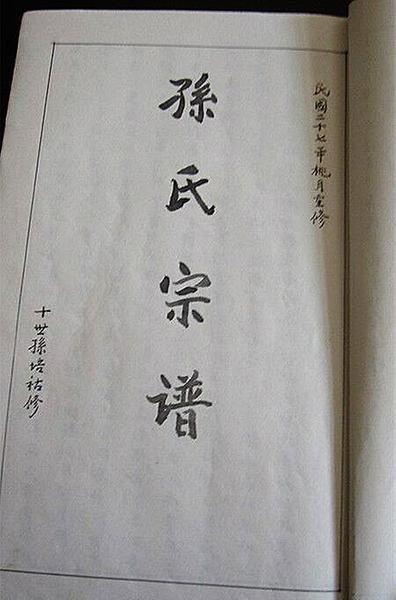 民國二十七年桃月重修
孫氏宗谱
十世孫培祜修